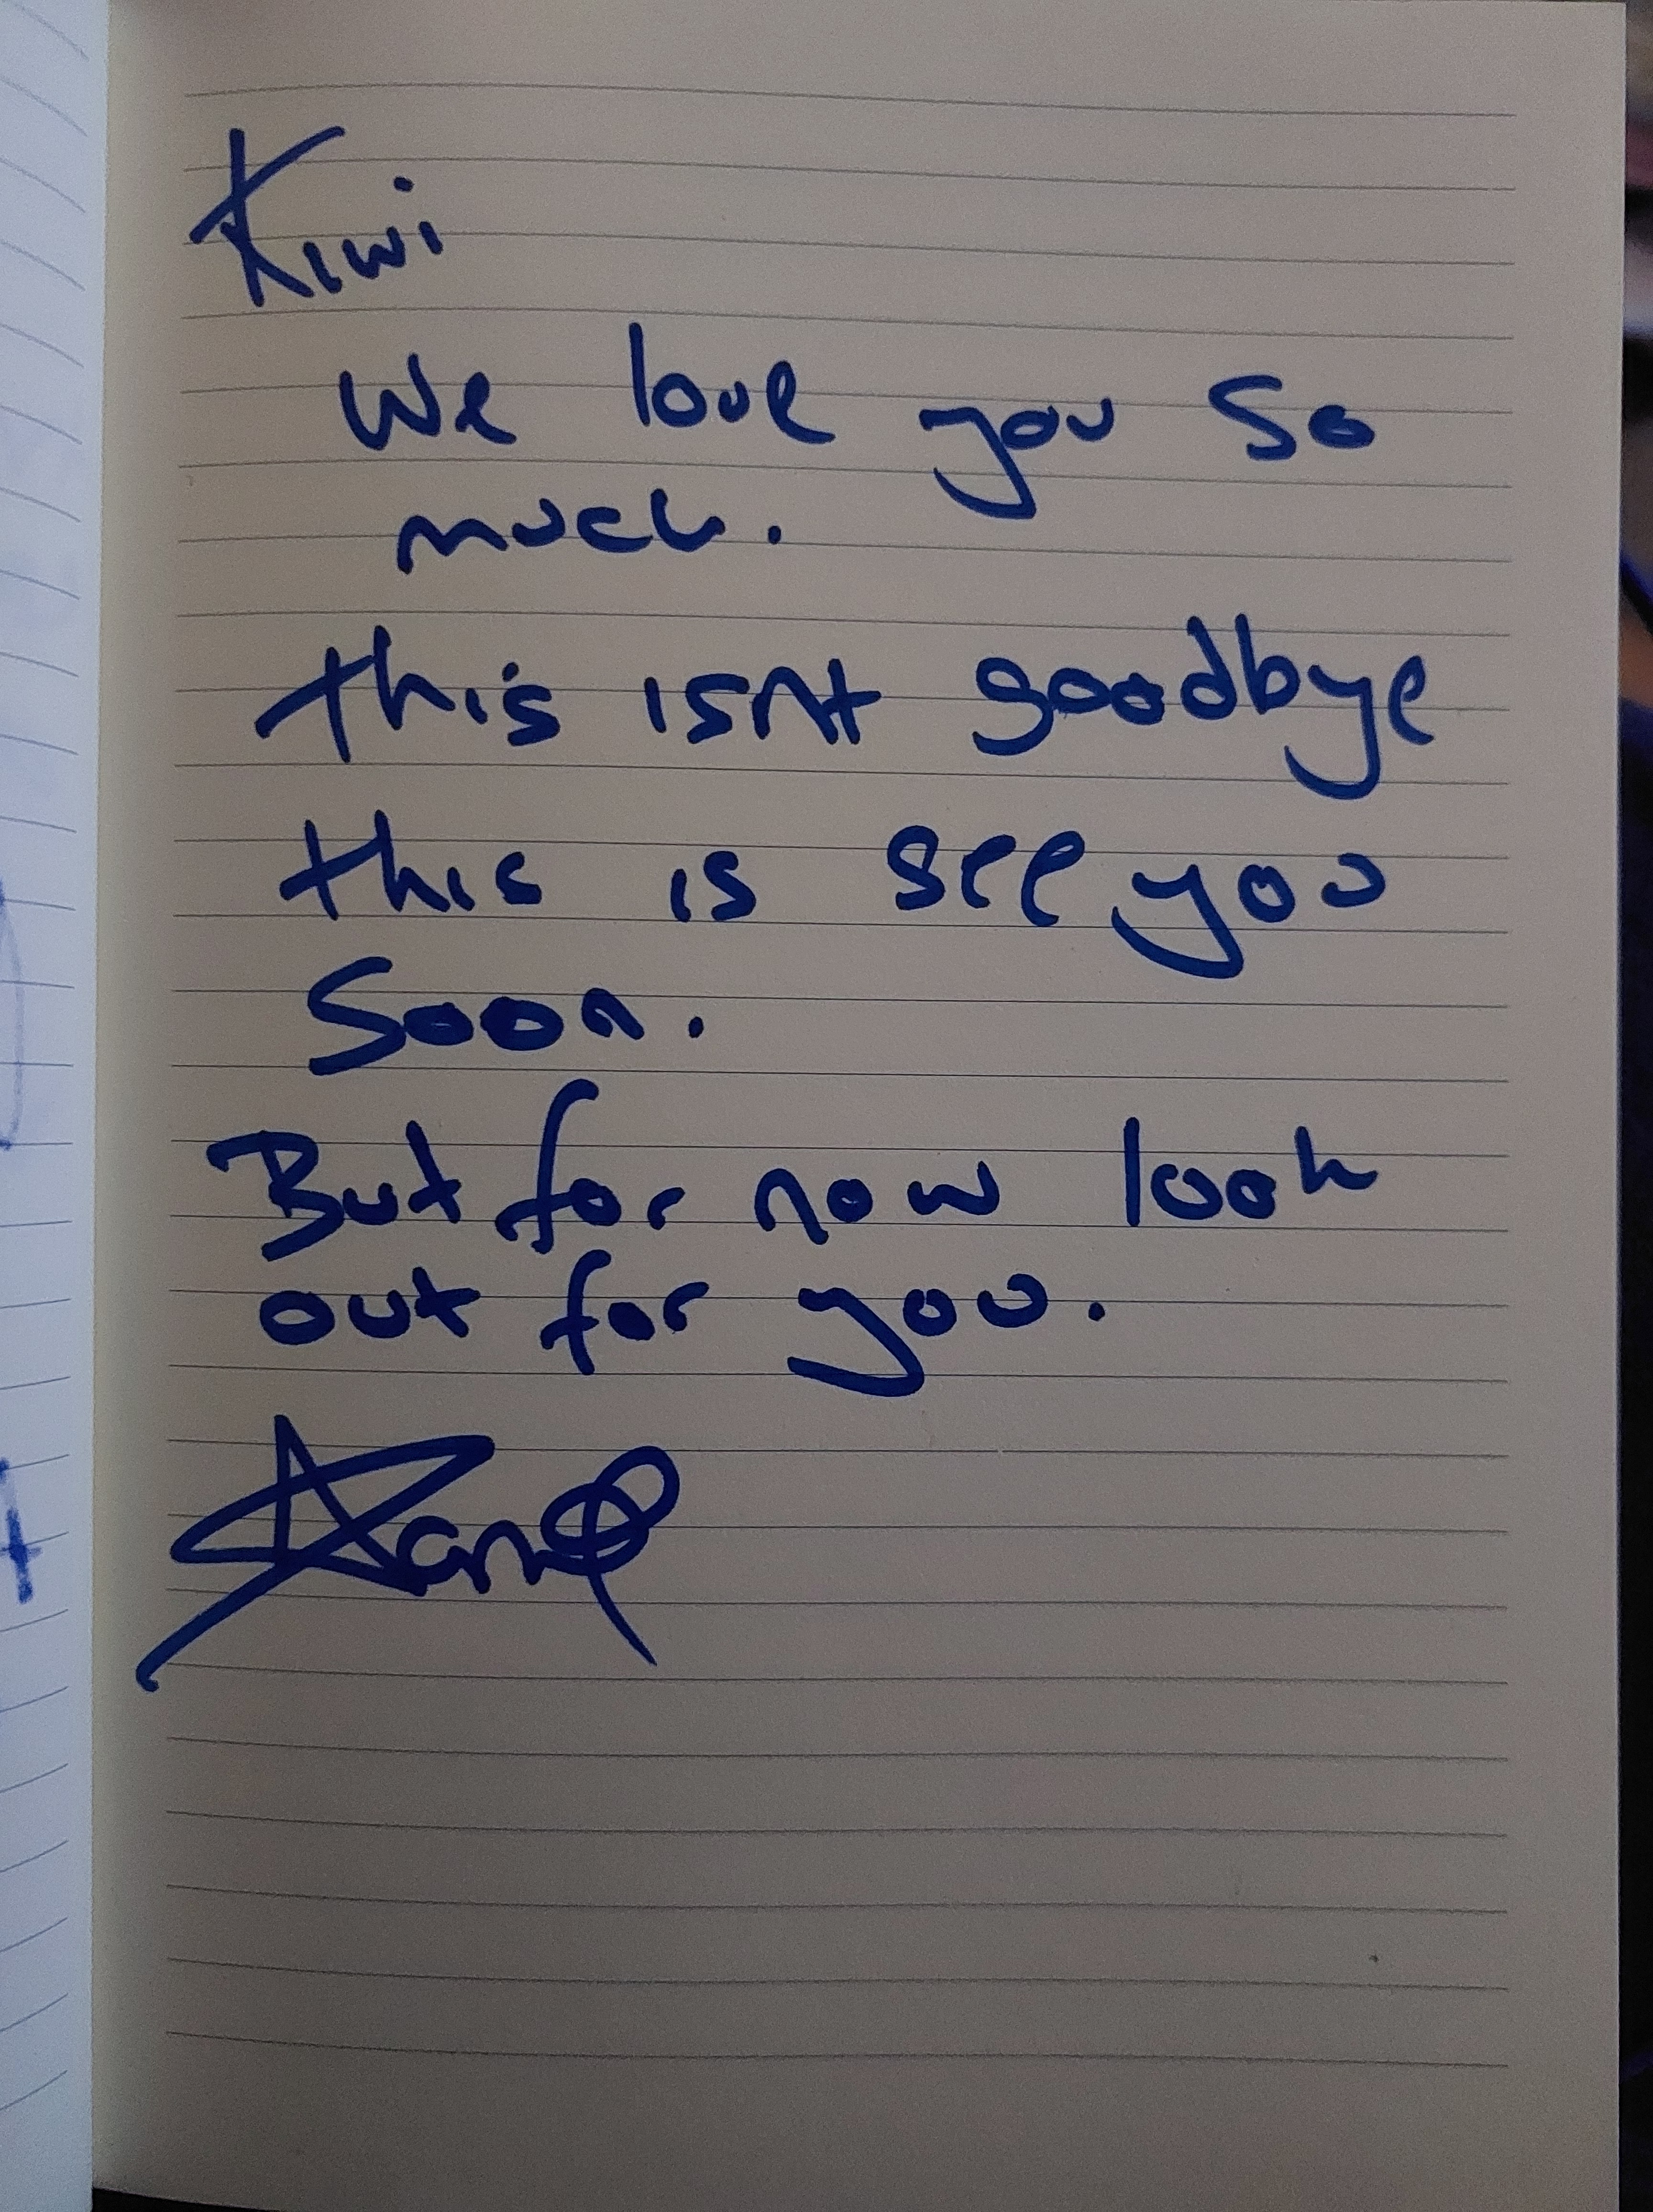 Kiwi
We love you so
much.
this isnt goodbye
this is see you
soon.
But for now look
out for you.